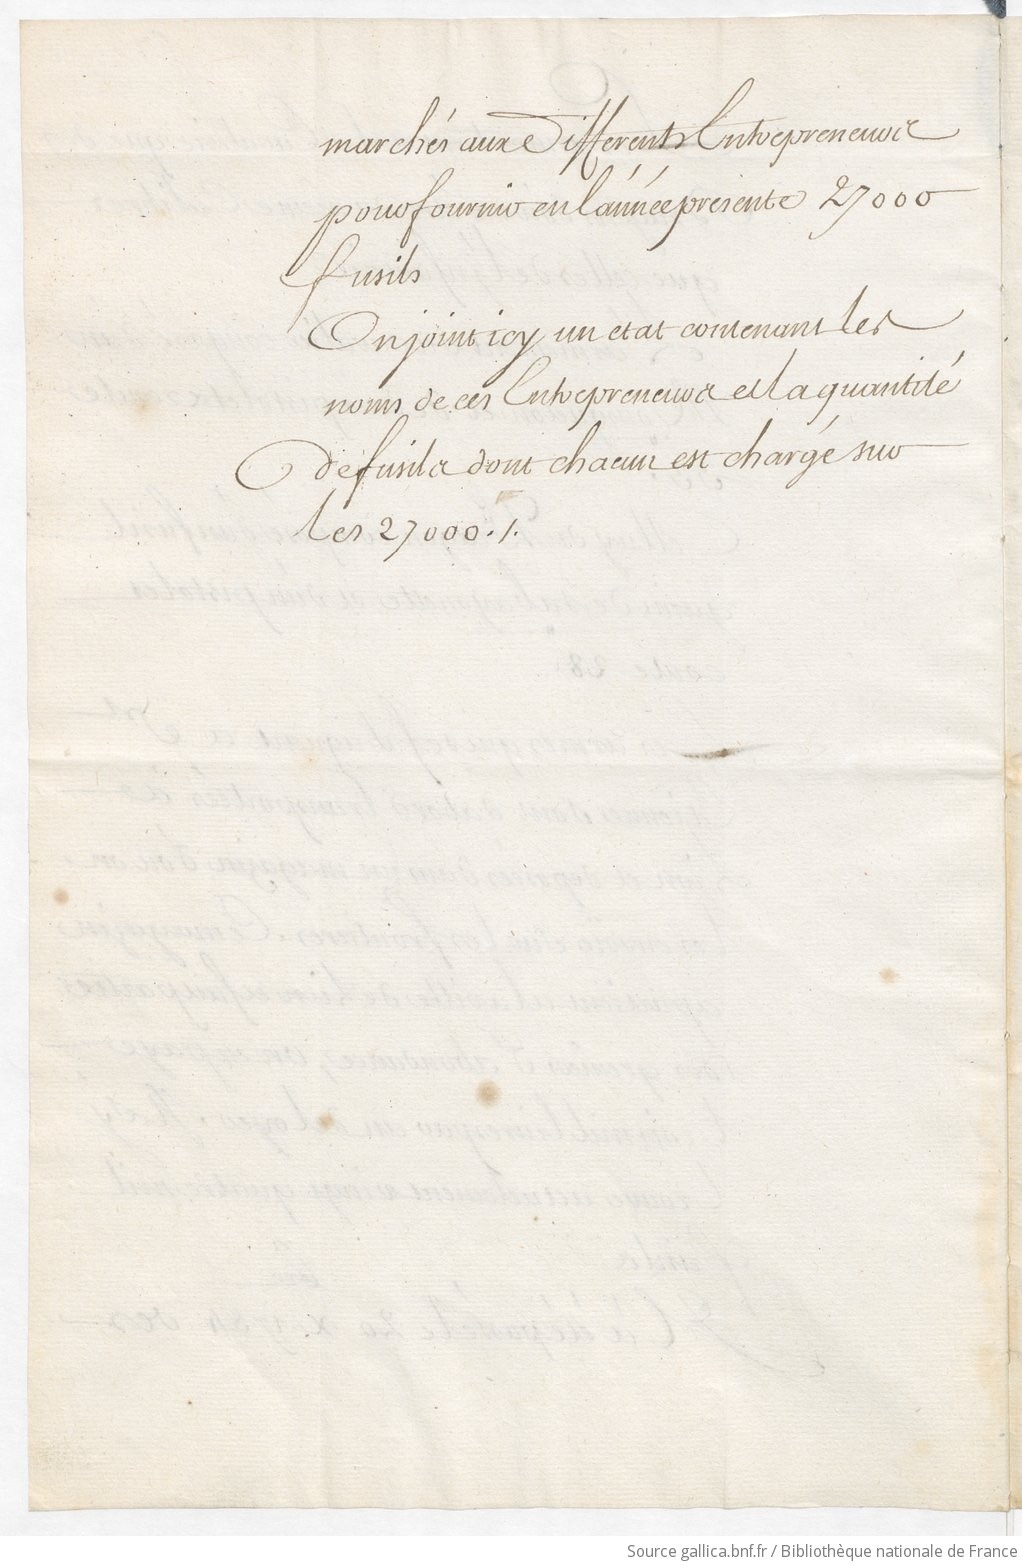 marchés aux Differents Entrepreneurs
pour fournir en l'année présente 27000
fusils
On joint icy un etat contenant les
noms de ces Entrepreneurs et la quantité
de fusils dont chacun est chargé sur
les 27000./.
Source gallica.bnf.fr / Bibliothèque nationale de France